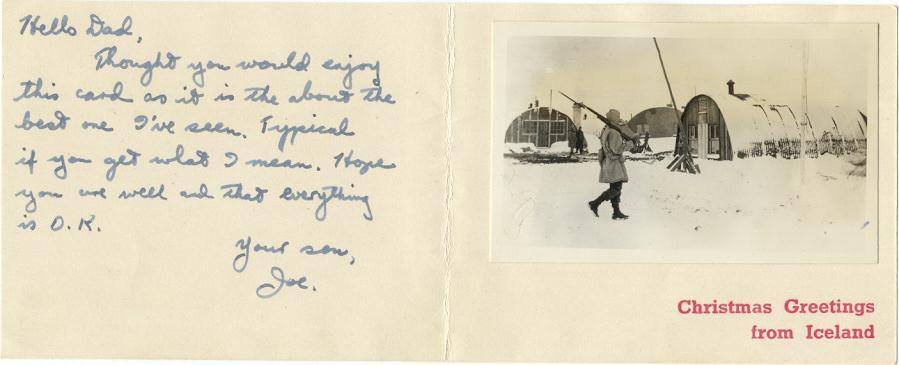 Hello Dad,
Thought you would enjoy
this card as it is the about the
best one I've seen. Typical
if you get what I mean. Hope
you are well and that everything
is O.K.
Your son,
Joe.
Christmas Greetings
from Iceland